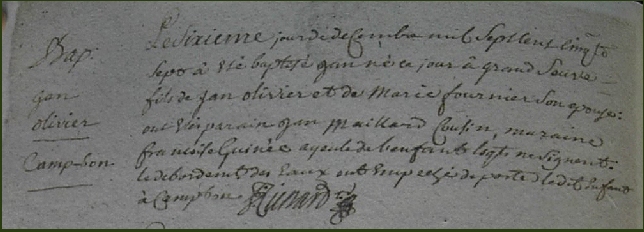 Bap.
jan
olivier
Camp-bon
Le Sixieme jour de decembre mil Sept Cent Cinqte
Sept à été baptisé jan né ce jour à grand
fils de jan olivier et de Marie fournier Son epouse:
ont été parain jan Maillard Cousin, maraine
francoise Guinée ayeule de l'enfant lesqls ne Signent.
le debordemt des Eaux ont Empeché de porter ledit Enfant
à Campbon